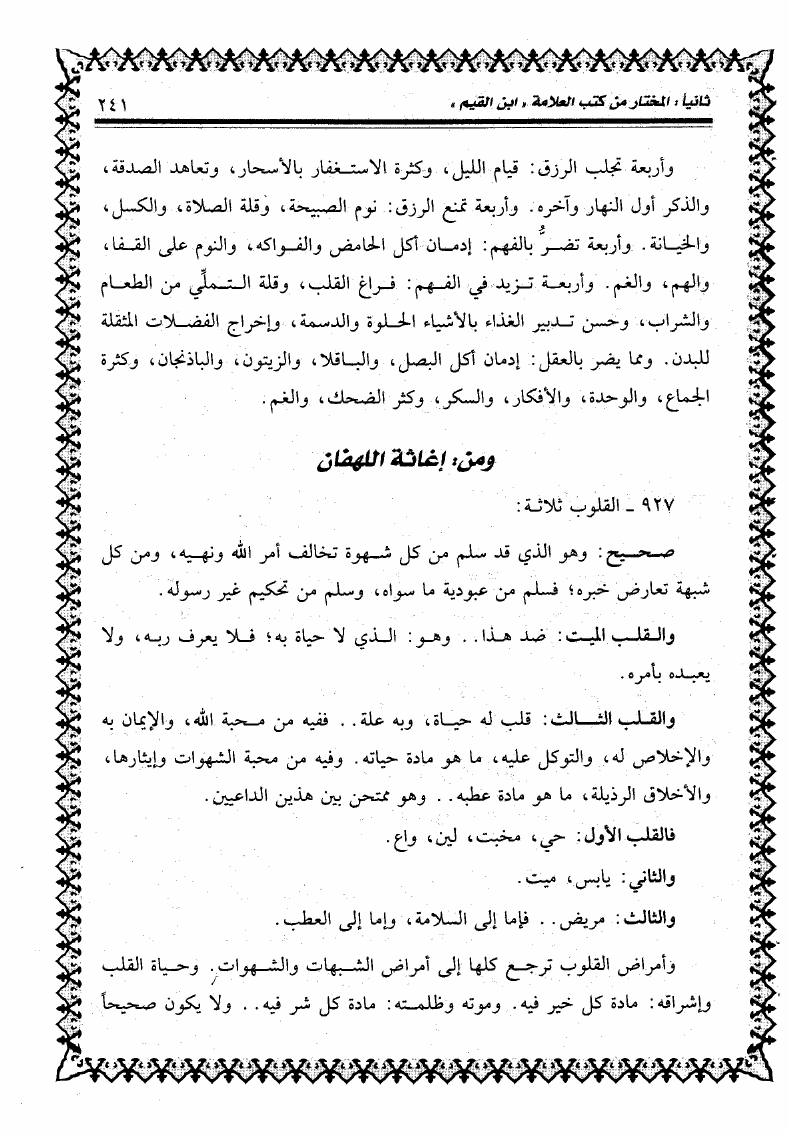 ثانياً : المختار من كتب العلامة « ابن القيم » ٢٤١
وأربعة تجلب الرزق: قيام الليل، وكثرة الاستغفار بالأسحار، وتعاهد الصدقة،
والذكر أول النهار وآخره. وأربعة تمنع الرزق: نوم الصبيحة، وقلة الصلاة، والكسل،
والخيانة. وأربعة تضرُّ بالفهم: إدمان أكل الحامض والفواكه، والنوم على القفا،
والهم، والغم. وأربعة تزيد في الفهم: فراغ القلب، وقلة التملِّي من الطعام
والشراب، وحسن تدبير الغذاء بالأشياء الحلوة والدسمة، وإخراج الفضلات المثقلة
للبدن. ومما يضر بالعقل: إدمان أكل البصل، والباقلا، والزيتون، والباذنجان، وكثرة
الجماع، والوحدة، والأفكار، والسكر، وكثر الضحك، والغم.
ومن: إغاثة اللهفان
٩٢٧ ـ القلوب ثلاثة:
صحيح: وهو الذي قد سلم من كل شهوة تخالف أمر الله ونهيه، ومن كل
شبهة تعارض خبره؛ فسلم من عبودية ما سواه، وسلم من تحكيم غير رسوله.
والقلب الميت: ضد هذا.. وهو: الذي لا حياة به؛ فلا يعرف ربه، ولا
يعبده بأمره.
والقلب الثالث: قلب له حياة، وبه علة.. ففيه من محبة الله، والإيمان به
والإخلاص له، والتوكل عليه، ما هو مادة حياته. وفيه من محبة الشهوات وإيثارها،
والأخلاق الرذيلة، ما هو مادة عطبه.. وهو ممتحن بين هذين الداعيين.
فالقلب الأول: حي، مخبت، لين، واع.
والثاني: يابس، ميت.
والثالث: مريض.. فإما إلى السلامة، وإما إلى العطب.
وأمراض القلوب ترجع كلها إلى أمراض الشبهات والشهوات. وحياة القلب
وإشراقه: مادة كل خير فيه. وموته وظلمته: مادة كل شر فيه.. ولا يكون صحيحاً